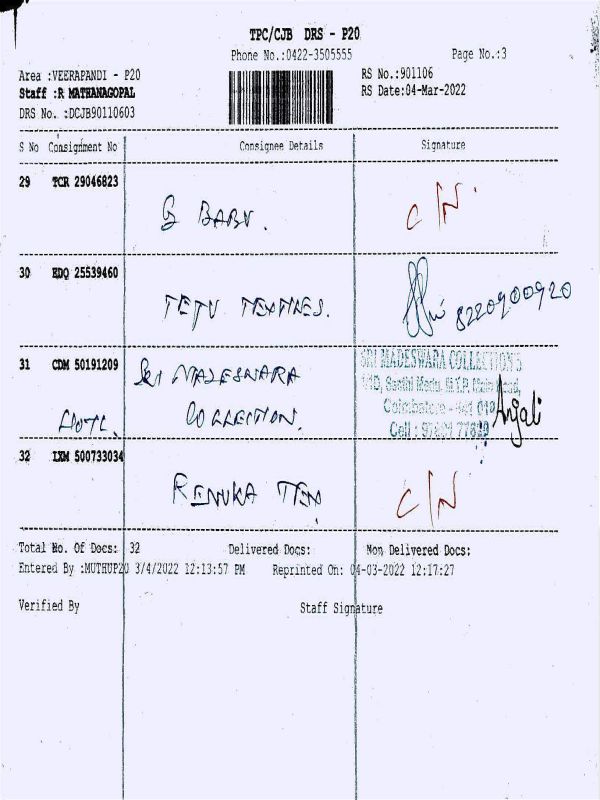 TPC/CJB DRS - P20
Phone No.:0422-3505555 Page No.:3
Area :VEERAPANDI - P20 RS No.:901106
Staff :R MATHANAGOPAL RS Date:04-Mar-2022
DRS No. :DCJB90110603
S No Consignment No Consignee Details Signature
29 TCR 29046823
G BABU. C/N
30 EDQ 25539460
TEJU TEXTILES. 8220900920
31 CDM 50191209 Sri MADESWARA SRI MADESWARA COLLECTIONS
COLLECTION. Coimbatore
Cell : Anjali
32 LXM 500733034
RENUKA TEX C/N
Total No. Of Docs: 32 Delivered Docs: Non Delivered Docs:
Entered By :MUTHUP20 3/4/2022 12:13:57 PM Reprinted On: 04-03-2022 12:17:27
Verified By Staff Signature